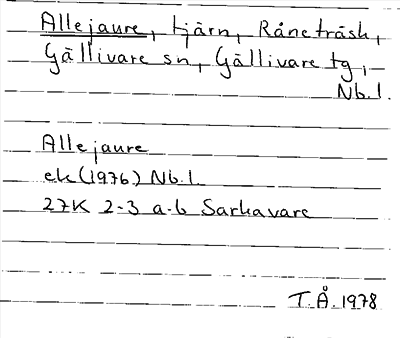 Allejaure, tjärn, Råneträsk,
Gällivare sn, Gällivare tg,
Nb.l.
Allejaure
ek(1976) Nb.l.
27K 2-3 a-b Sarkavare
T.Å. 1978